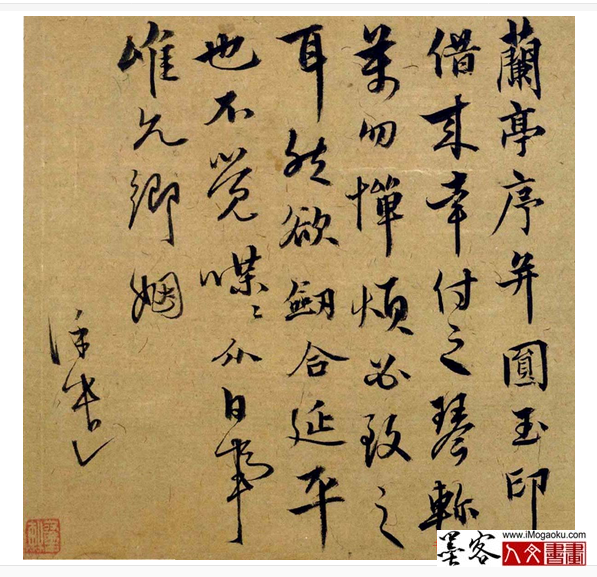 蘭亭序并圓玉印
借來幸付之琴
萬勿憚煩必致之
耳然欲劒合延平
也不覺喋〻 日
唯允卿姻
墨客
www.iMogaoku.com
人文書畫